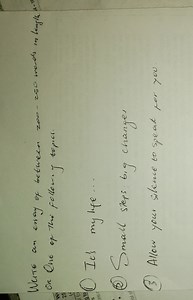 Write an essay of between 200-250 words in length
on One of the following topics.
① It's my life...
② Small steps big changes
③ Allow your silence to speak for you